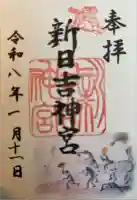 奉拝
新日吉神宮
令和八年一月十一日